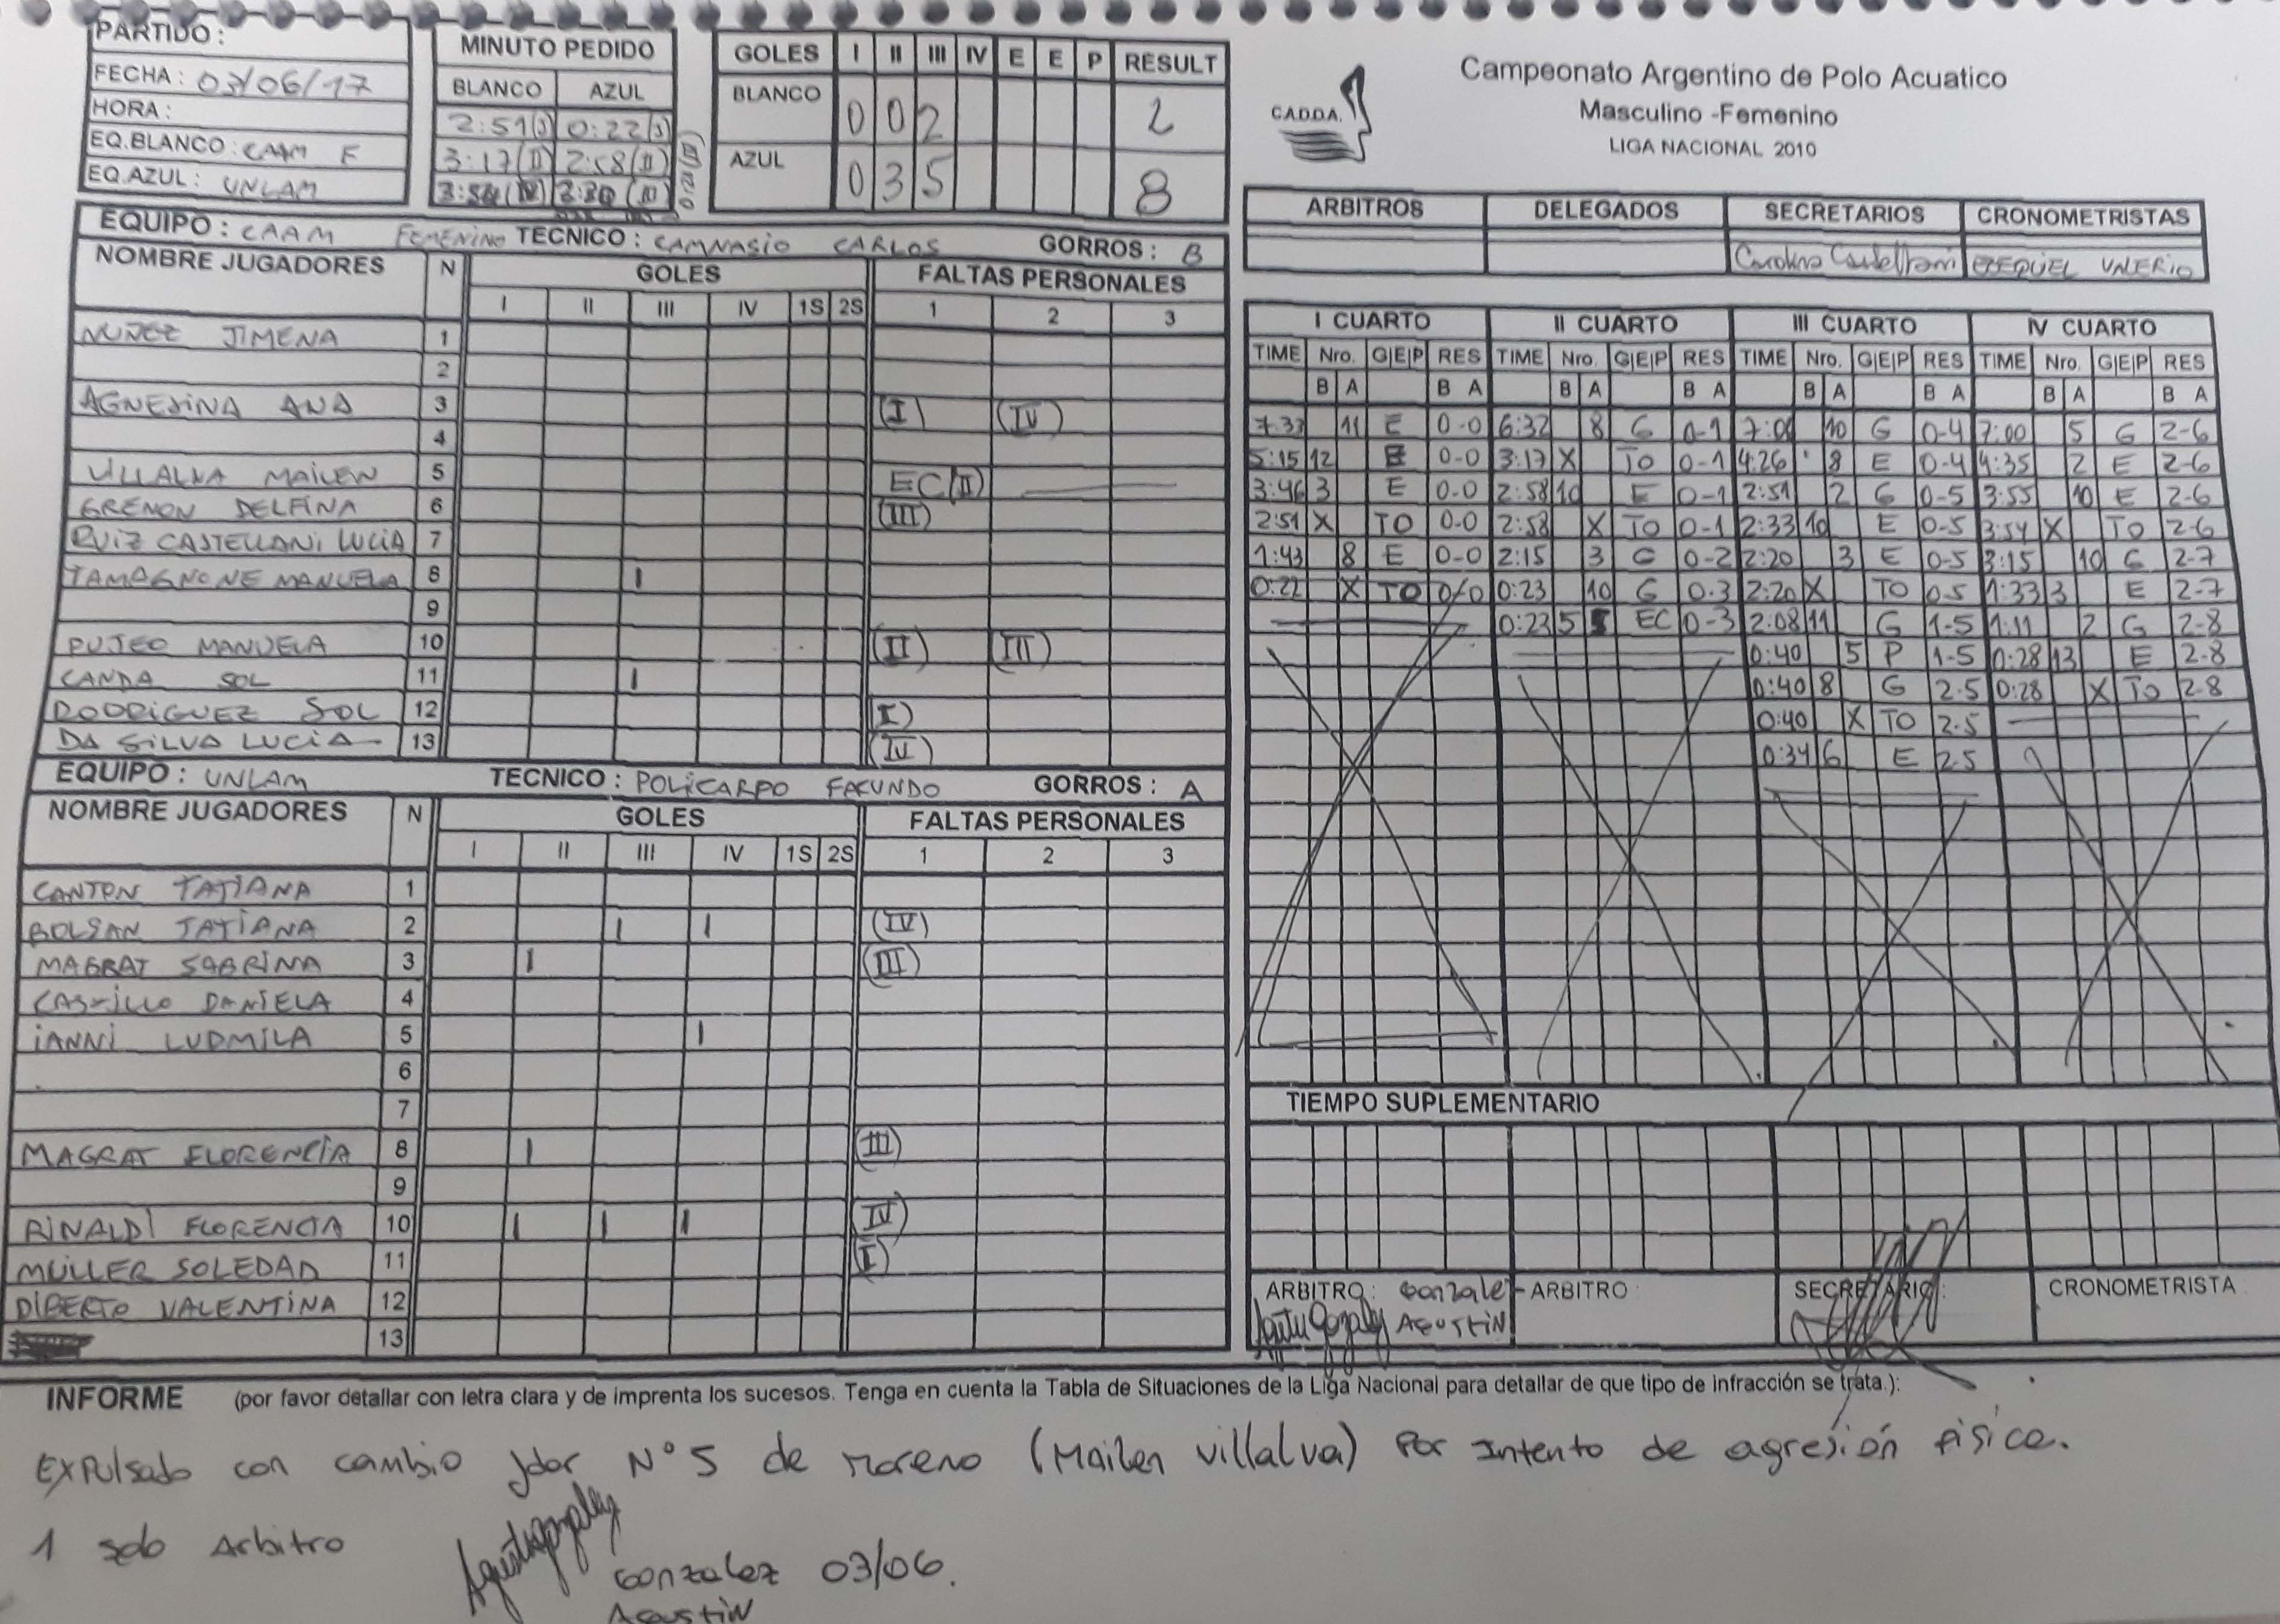 PARTIDO :
FECHA : 03/06/17
HORA :
EQ.BLANCO : CAAM F
EQ.AZUL : UNLAM
MINUTO PEDIDO
BLANCO AZUL
2:51(I) 0:22(I)
3:17(II) 2:58(II)
3:54(IV)
GOLES I II III IV E E P RESULT
BLANCO 0 0 2 2
AZUL 0 3 5 8
C.A.D.D.A.
Campeonato Argentino de Polo Acuatico
Masculino -Femenino
LIGA NACIONAL 2010
ARBITROS DELEGADOS SECRETARIOS CRONOMETRISTAS
Carolina Castellani EZEQUIEL VALERIO
EQUIPO : CAAM FEMENINO TECNICO : CAMNASIO CARLOS GORROS : B
NOMBRE JUGADORES N GOLES FALTAS PERSONALES
I II III IV 1S 2S 1 2 3
NUÑEZ JIMENA 1
2
AGNESINA ANA 3 (I) (IV)
4
VILLALVA MAILEN 5 EC(II)
GRENON DELFINA 6 (III)
RUIZ CASTELLANI LUCIA 7
TAMAGNONE MANUELA 8 I
9
PUJEO MANUELA 10 (II) (III)
CANDA SOL 11 I
RODRIGUEZ SOL 12 (I)
DA SILVA LUCIA 13 (IV)
EQUIPO : UNLAM TECNICO : POLICARPO FACUNDO GORROS : A
NOMBRE JUGADORES N GOLES FALTAS PERSONALES
I II III IV 1S 2S 1 2 3
CANTON TATIANA 1
BOLSAN TATIANA 2 I I (IV)
MAGRAT SABRINA 3 I (III)
CASTILLO DANIELA 4
IANNI LUDMILA 5 I
6
7
MAGRAT FLORENCIA 8 I (III)
9
RINALDI FLORENCIA 10 I I I (IV)
MÜLLER SOLEDAD 11 (I)
DIBERTO VALENTINA 12
13
I CUARTO II CUARTO III CUARTO IV CUARTO
TIME Nro. G|E|P RES TIME Nro. G|E|P RES TIME Nro. G|E|P RES TIME Nro. G|E|P RES
B A B A B A B A B A B A B A B A
7:33 11 E 0-0 6:32 8 G 0-1 7:00 10 G 0-4 7:00 5 G 2-6
5:15 12 E 0-0 3:17 X TO 0-1 4:26 8 E 0-4 4:35 2 E 2-6
3:46 3 E 0-0 2:58 10 E 0-1 2:51 2 G 0-5 3:55 10 E 2-6
2:51 X TO 0-0 2:58 X TO 0-1 2:33 10 E 0-5 3:54 X TO 2-6
1:43 8 E 0-0 2:15 3 G 0-2 2:20 3 E 0-5 3:15 10 G 2-7
0:22 X TO 0/0 0:23 10 G 0-3 2:20 X TO 0-5 1:33 3 E 2-7
0:23 5 EC 0-3 2:08 11 G 1-5 1:11 2 G 2-8
0:40 5 P 1-5 0:28 13 E 2-8
0:40 8 G 2-5 0:28 X TO 2-8
0:40 X TO 2-5
0:34 6 E 2-5
TIEMPO SUPLEMENTARIO
ARBITRO : Gonzalez ARBITRO : SECRETARIO : CRONOMETRISTA
AGUSTIN
INFORME (por favor detallar con letra clara y de imprenta los sucesos. Tenga en cuenta la Tabla de Situaciones de la Liga Nacional para detallar de que tipo de infracción se trata.):
EXPulsado con cambio Jdor N°5 de Moreno (Mailen Villalva) Por Intento de agresión fisica.
1 solo Arbitro
Gonzalez 03/06.
AGUSTIN